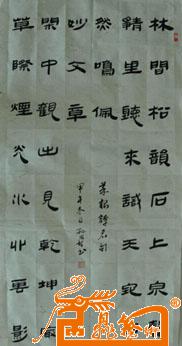 林間松韻石上泉
靜里聽來識天地
然鳴佩
草際煙光水心雲影
閑中觀出見乾坤
妙文章
菜根譚名句
甲午冬日